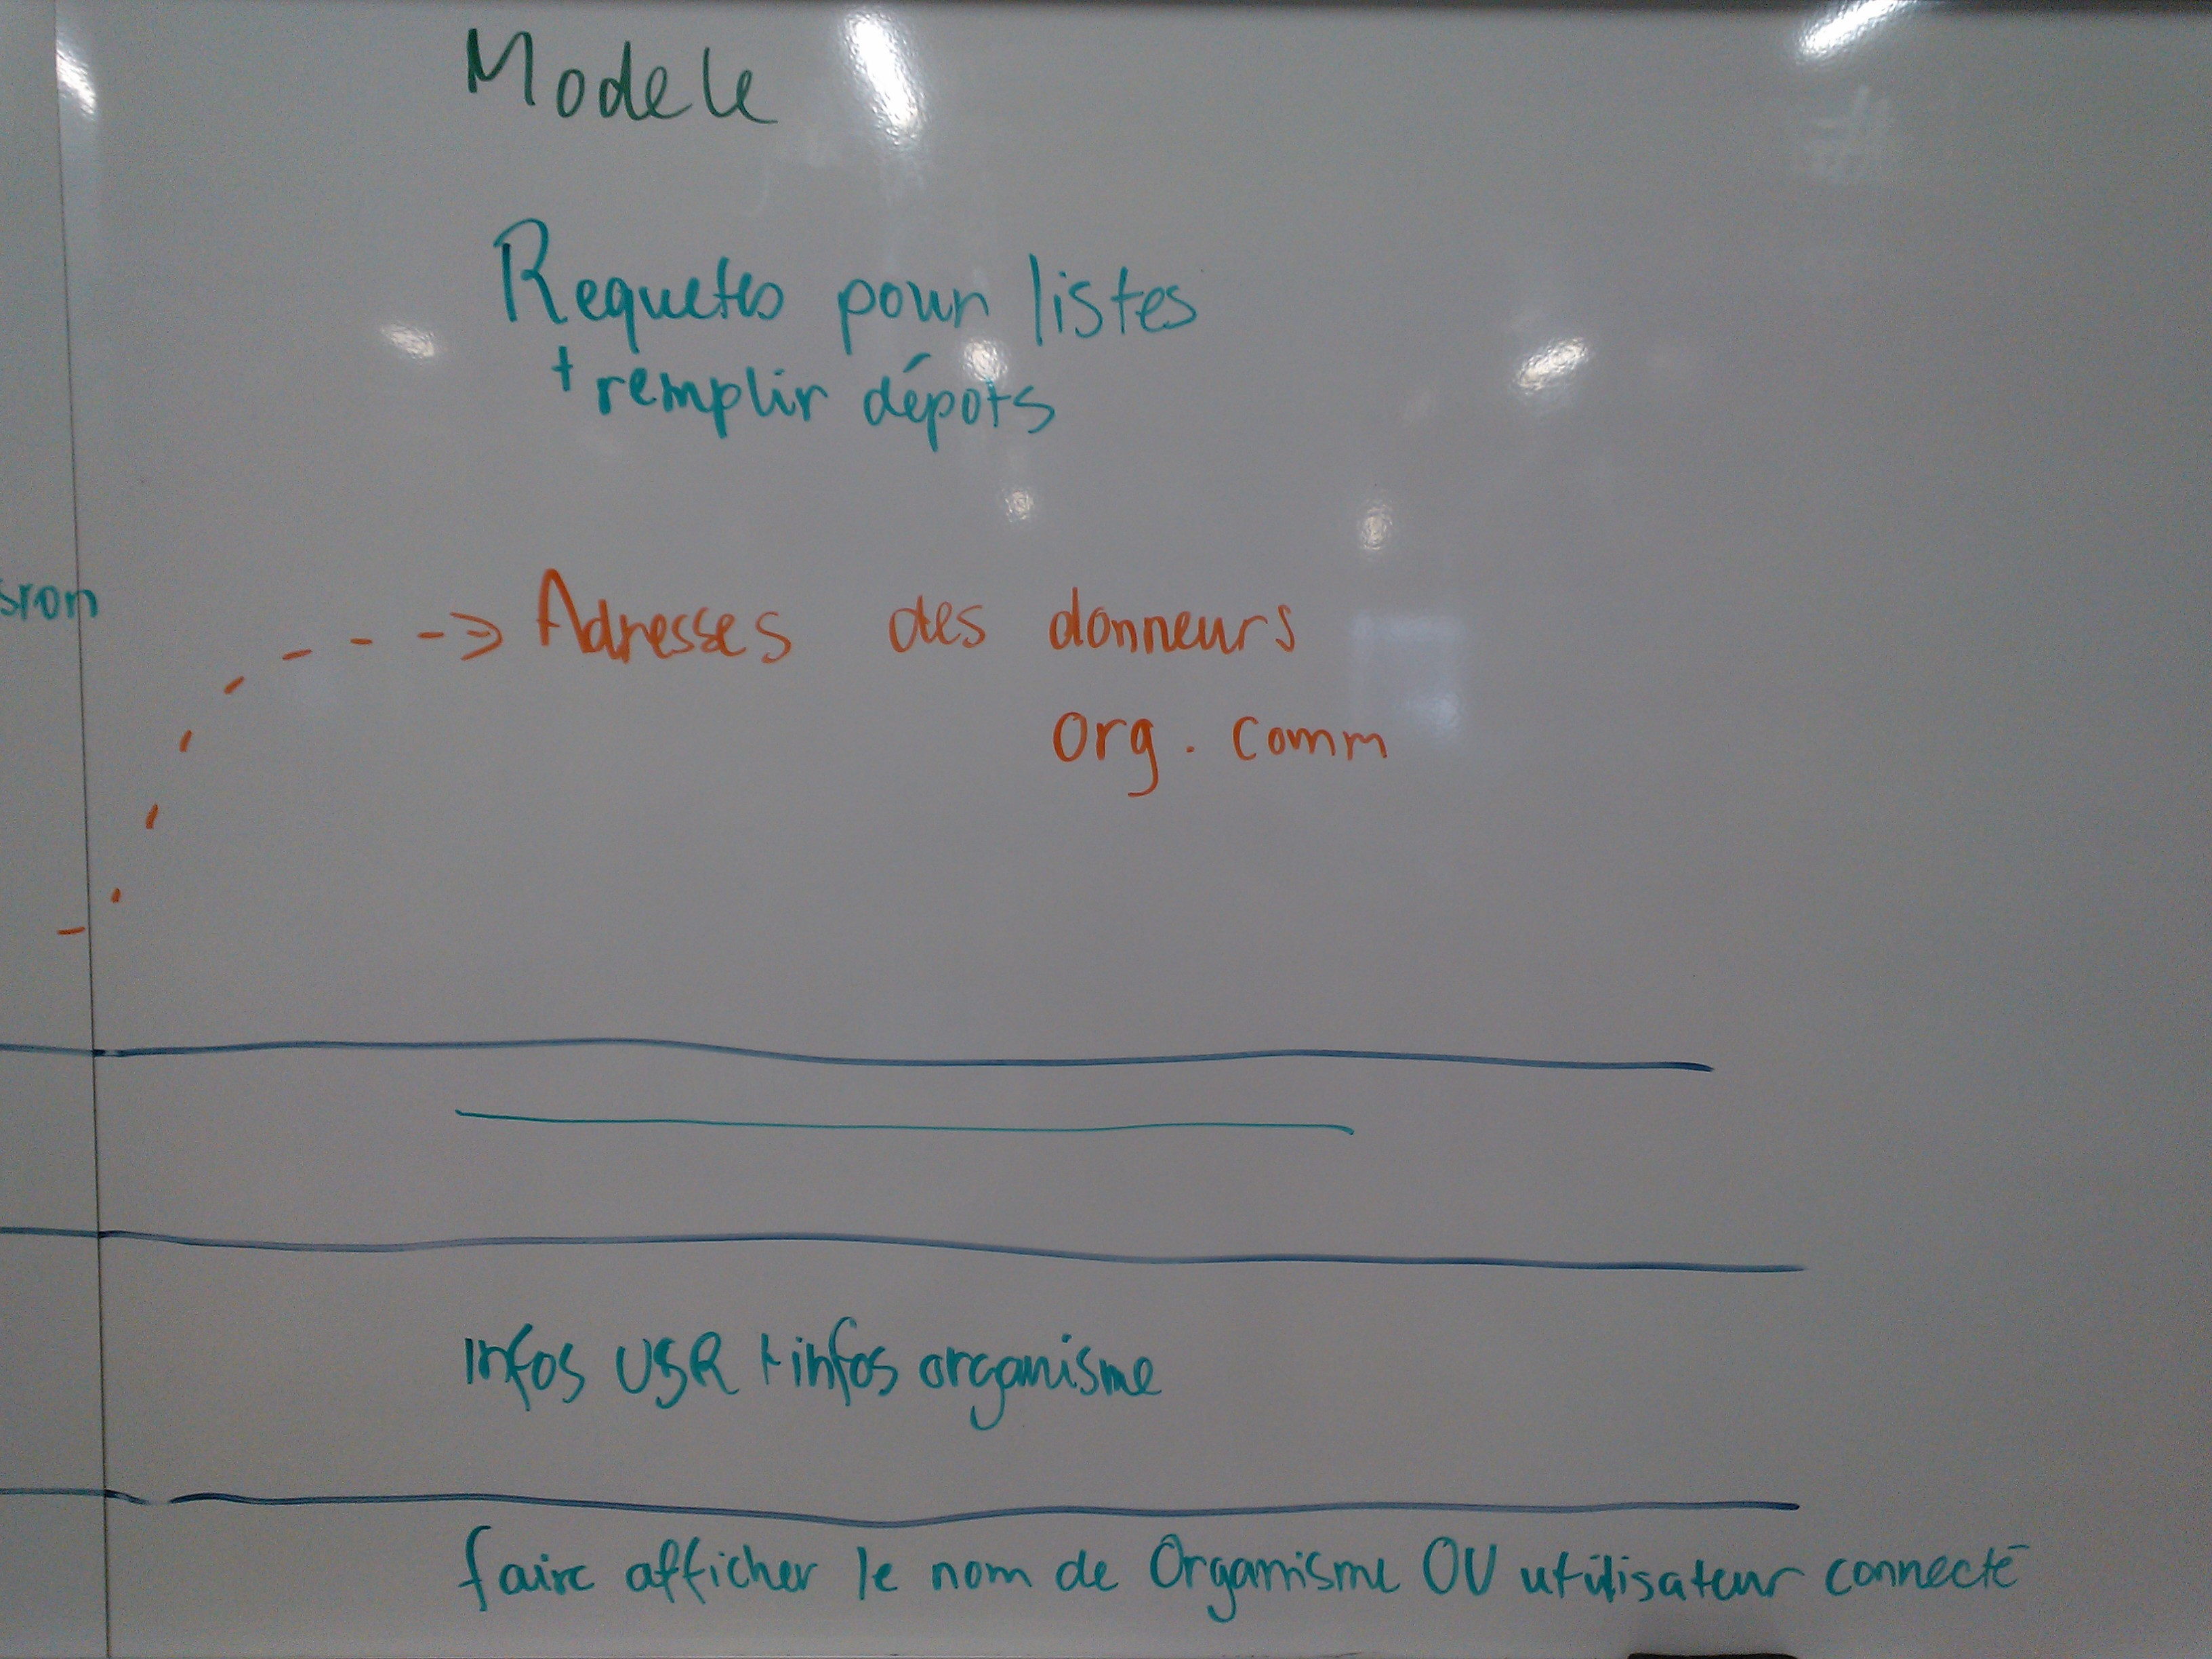 Modele
Requetes pour listes
+ remplir dépots
sion
--> Adresses des donneurs
org. comm
Infos USR + infos organisme
faire afficher le nom de Organisme OU utilisateur connecté